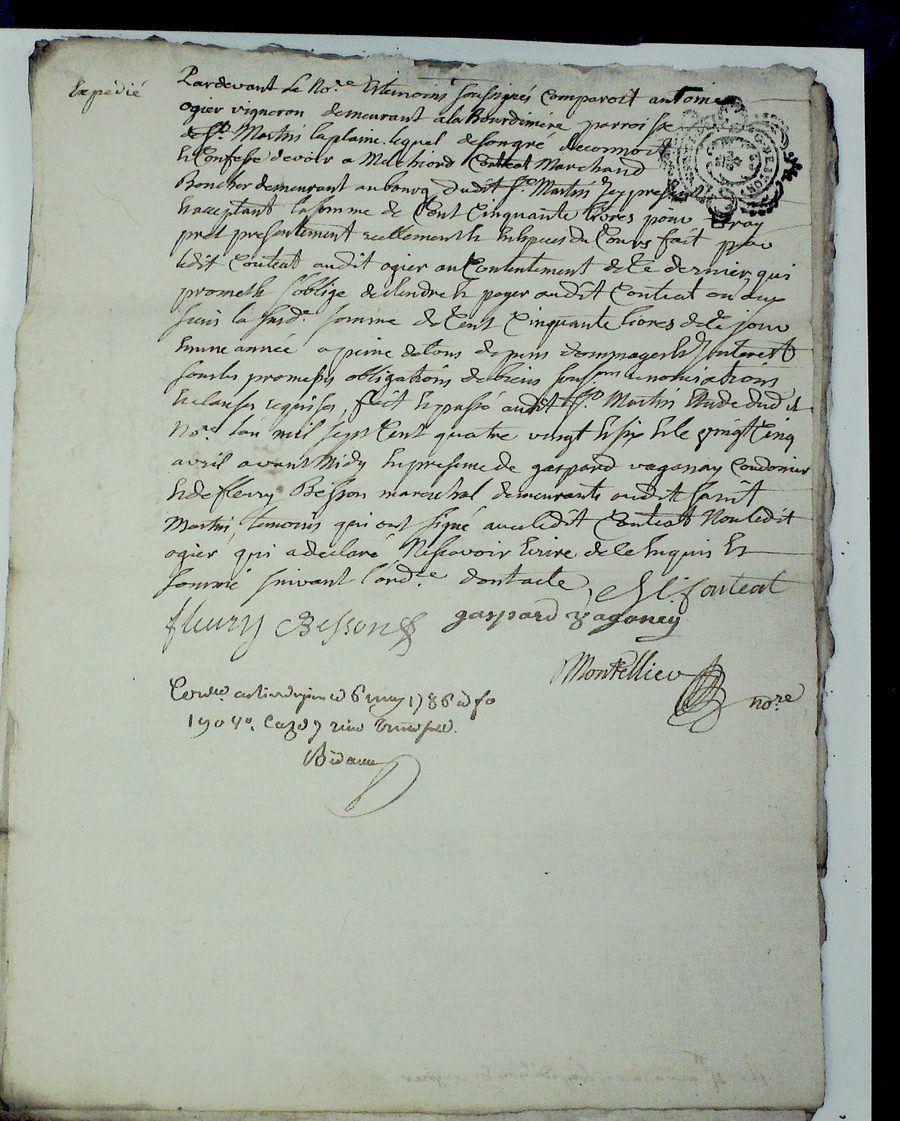 Expedié
Pardevant le No.re & temoins soussignés comparoit antoine
ogier vigneron demeurant a la Bourdinière parroisse
de St. Martin la plaine. lequel de son gré reconnoit
& Confesse devoir a Melchiord Couteat Marchand
Boucher demeurant au bourg dudit St. Martin icy present
& acceptant la somme de Cent Cinquante livres pour vray
prêt presentement reellement & en Espèces du Cours fait par
ledit Couteat audit ogier au Contentement de Ce dernier, qui
promet & s'oblige de Rendre & payer audit Couteat ou aux
siens la susd.e somme de Cent Cinquante livres de Ce jour
En une année a peine de tous depens dommages & Interest
sous les promesses obligations de biens soumissions renonciations
& clauses requises, fait & passé audit St. Martin Etude dudit
No.re l'an mil sept Cent quatre vingt & six & le vingt Cinq
avril avant Midy En presence de gaspard vaganay Cordonier
& de fleury Besson marechal demeurants audit saint
Martin, temoins qui ont signé avec ledit Couteat Non ledit
ogier qui a declaré Ne scavoir Ecrire de Ce Enquis &
sommé suivant l'ord.ce dont acte,
M Couteat
fleury Besson gaspard vaganey
Montellier
no.re
6 may 1786
190 v.o